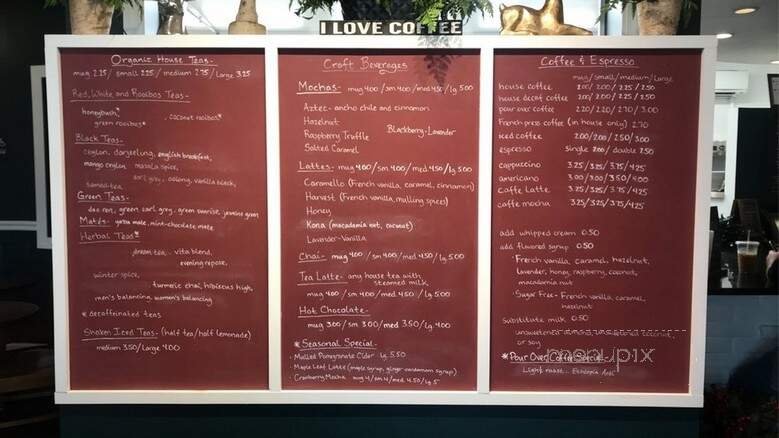 I LOVE COFFEE
Organic House Teas-
mug 2.25/ small 2.25/medium 2.75/Large 3.25
Red, White and Rooibos Teas-
honeybush*
green rooibos* , coconut rooibos*
Black Teas-
ceylon, darjeeling, english breakfast,
mango ceylon masala spice,
earl grey, oolong, vanilla black,
samoa tea
Green Teas-
dao ren, green earl grey, green sunrise, jasmine green
Matés- yerba mate, mint-chocolate mate
Herbal Teas*
dream tea, vita blend,
evening repose,
winter spice,
turmeric chai, hibiscus high,
men's balancing, women's balancing
* decaffeinated teas
Shaken Iced Teas- (half tea/half lemonade)
medium 3.50/Large 4.00
Craft Beverages
Mochas- mug 4.00 /sm 4.00/med 4.50/Lg 5.00
Aztec- ancho chile and cinnamon
Hazelnut
Raspberry Truffle Blackberry-Lavender
Salted Caramel
Lattes- mug 4.00/sm 4.00/med 4.50/Lg 5.00
Caramello (French vanilla, caramel, cinnamon)
Harvest (French vanilla, mulling spices)
Honey
Kona (macadamia nut, coconut)
Lavender-Vanilla
Chai- mug 4.00/sm 4.00/med 4.50/Lg 5.00
Tea Latte- any house tea with
steamed milk
mug 4.00/sm 4.00/med 4.50/Lg 5.00
Hot Chocolate-
mug 3.00/sm 3.00/med 3.50/Lg 4.00
*Seasonal Special-
- Mulled Pomegranate Cider Lg 5.50
- Maple Leaf Latte (maple syrup, ginger cardamom syrup)
- Cranberry Mocha mug 4/sm 4/med 4.50/Lg 5
Coffee & Espresso
mug/small/medium/Large
house coffee 2.00/2.00/2.25/2.50
house decaf coffee 2.00/2.00/2.25/2.50
pour over coffee 2.20/2.20/2.70/3.00
French-press coffee (in house only) 2.70
iced coffee 2.00/2.00/2.50/3.00
espresso single 2.00/double 2.50
cappuccino 3.25/3.25/3.75/4.25
americano 3.00/3.00/3.50/4.00
caffe Latte 3.25/3.25/3.75/4.25
caffe mocha 3.25/3.25/3.75/4.25
add whipped cream 0.50
add flavored syrup 0.50
· French vanilla, caramel, hazelnut,
lavender, honey, raspberry, coconut,
macadamia nut
· Sugar Free- French vanilla, caramel,
hazelnut
substitute milk 0.50
unsweetened coconut,
or soy
menupix
*Pour Over Coffee Special-
Light roast... Ethiopia